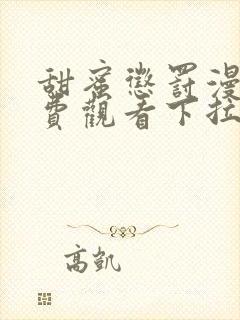 甜蜜懲罰漫
費觀看下拉
高凱